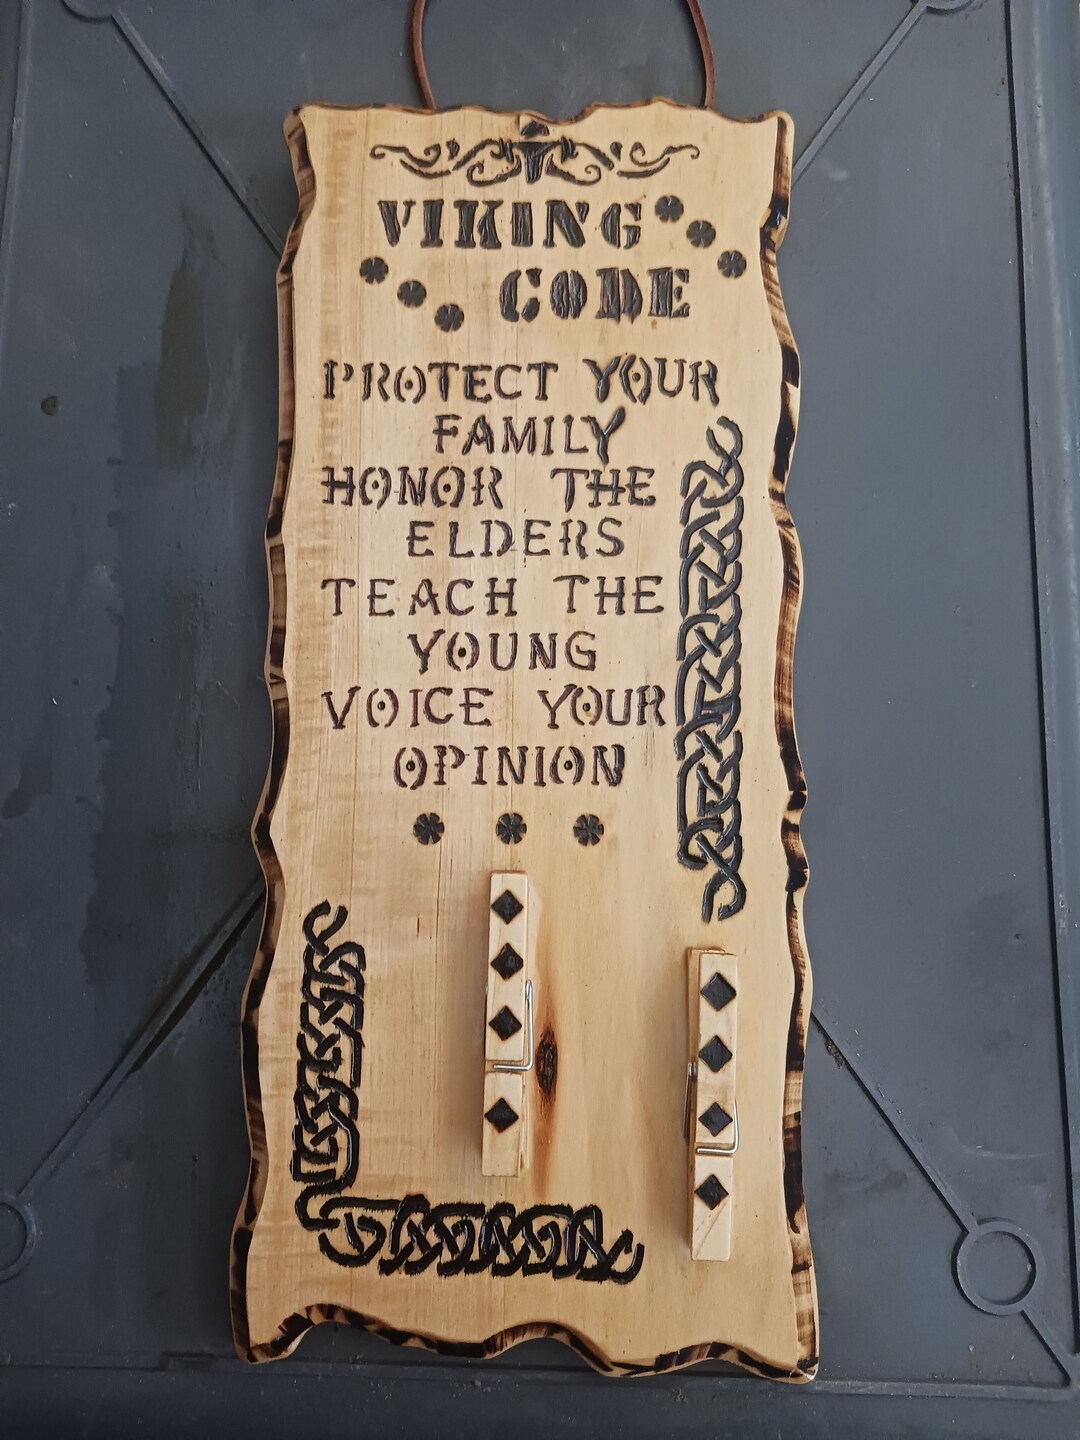 VIKING
CODE
PROTECT YOUR
FAMILY
HONOR THE
ELDERS
TEACH THE
YOUNG
VOICE YOUR
OPINION